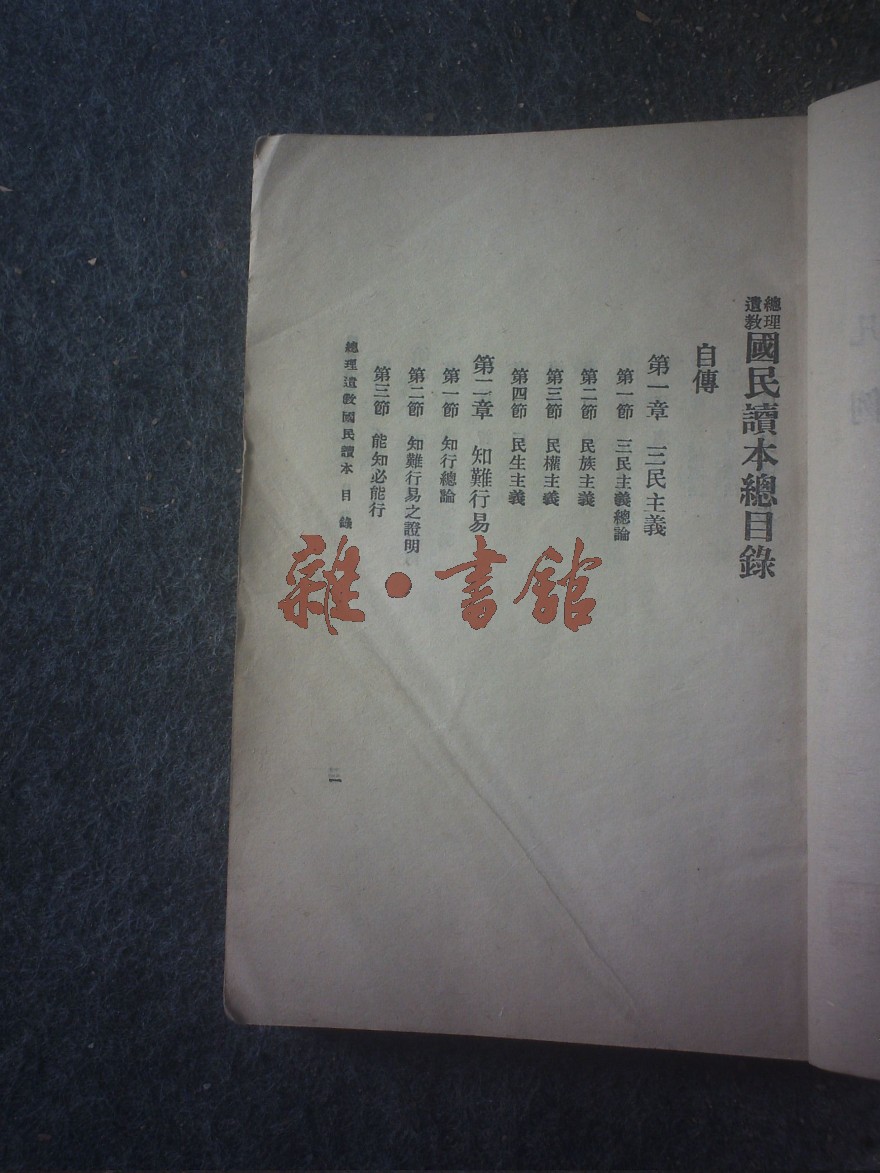 總理遺教國民讀本總目錄
自傳
第一章 三民主義
第一節 三民主義總論
第二節 民族主義
第三節 民權主義
第四節 民生主義
第二章 知難行易
第一節 知行總論
第二節 知難行易之證明
第三節 能知必能行
總理遺教國民讀本 目錄
雜·書館